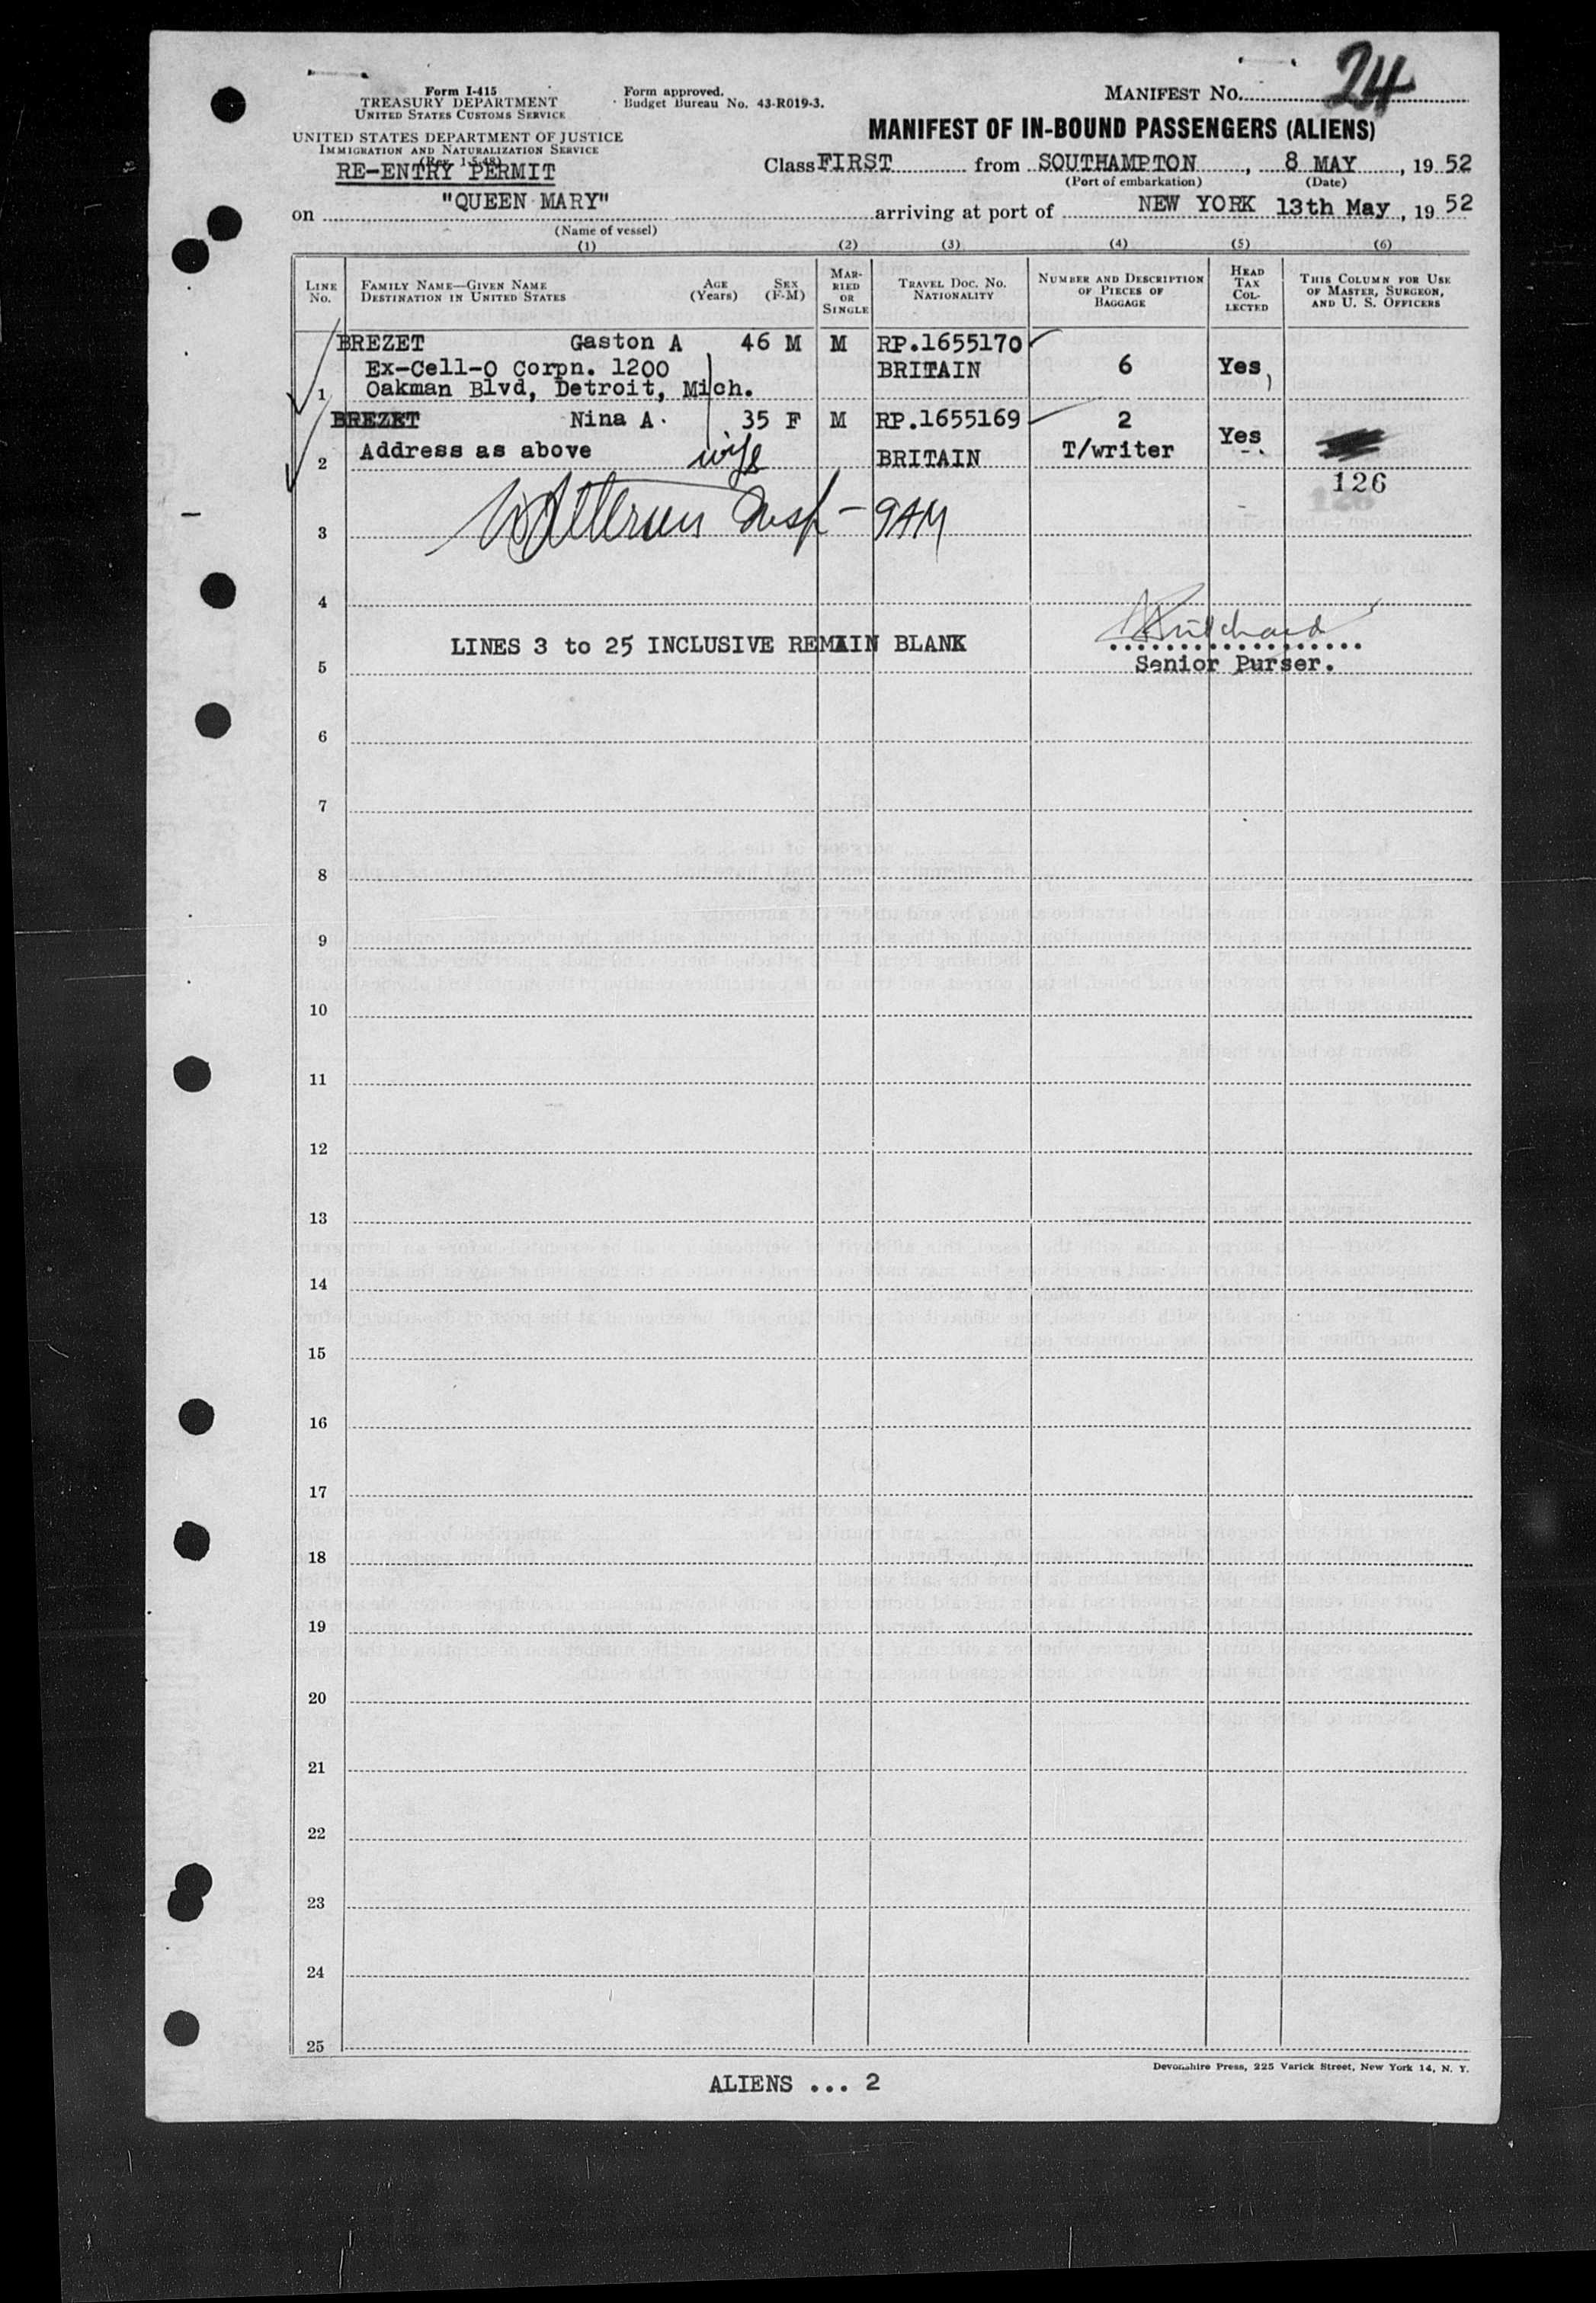 24
Form I-415
TREASURY DEPARTMENT
UNITED STATES CUSTOMS SERVICE
Form approved.
Budget Bureau No. 43-R019-3.
MANIFEST No.
UNITED STATES DEPARTMENT OF JUSTICE
IMMIGRATION AND NATURALIZATION SERVICE
(Rev. 1-5-48)
RE-ENTRY PERMIT
MANIFEST OF IN-BOUND PASSENGERS (ALIENS)
Class FIRST from SOUTHAMPTON, 8 MAY, 1952
(Port of embarkation) (Date)
on "QUEEN MARY" arriving at port of NEW YORK 13th May, 1952
(Name of vessel)
(1) (2) (3) (4) (5) (6)
LINE No. FAMILY NAME—GIVEN NAME DESTINATION IN UNITED STATES AGE (Years) SEX (F-M) MARRIED OR SINGLE TRAVEL DOC. NO. NATIONALITY NUMBER AND DESCRIPTION OF PIECES OF BAGGAGE HEAD TAX COLLECTED THIS COLUMN FOR USE OF MASTER, SURGEON, AND U. S. OFFICERS
BREZET Gaston A 46 M M RP.1655170
Ex-Cell-O Corpn. 1200 BRITAIN 6 Yes
1 Oakman Blvd, Detroit, Mich.
BREZET Nina A. 35 F M RP.1655169 2 Yes
2 Address as above wife BRITAIN T/writer
126
3 Insp - 9AM
4
Pritchard
LINES 3 to 25 INCLUSIVE REMAIN BLANK
5 Senior Purser.
6
7
8
9
10
11
12
13
14
15
16
17
18
19
20
21
22
23
24
25
Devonshire Press, 225 Varick Street, New York 14, N. Y.
ALIENS ... 2